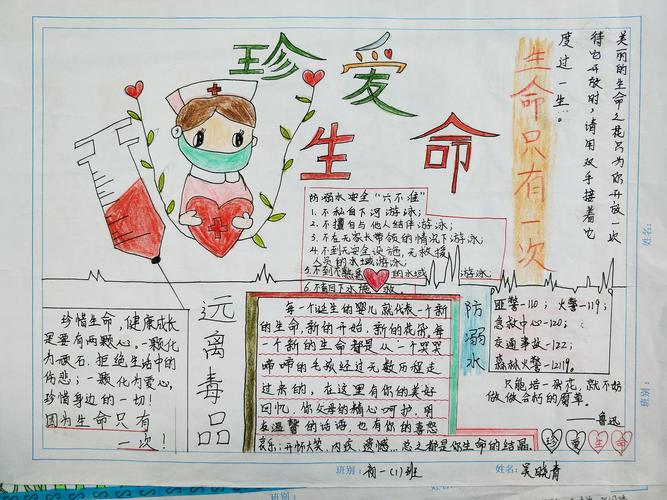 珍爱
生命
美丽的生命之花只为你开放一次
待它开放时,请用双手接着它
度过一生。
生命只有一次
防溺水安全“六不准”
1.不私自下河游泳;
2.不擅自与他人结伴游泳;
3.不在无家长带领的情况下游泳;
4.不到无安全设施,无救援
人员的水域游泳;
5.不到不熟悉的水域游泳
6.不盲目下水施救。
珍惜生命,健康成长
是要有两颗心。一颗化
为顽石,拒绝生活中的
伤悲;一颗化为爱心,
珍惜身边的一切!
因为生命只有
一次!
远离毒品
每一个诞生的婴儿就代表一个新
的生命,新的开始,新的花骨,每
一个新的生命都是从一个哭哭
啼啼的毛孩经过无数历程走
过来的,在这里有你的美好
回忆,你父母的精心呵护,朋
友温馨的话语,也有你的喜怒
哀乐;开怀大笑,内疚,遗憾…总之都是你生命的结晶.
防溺水
匪警-110;火警-119;
急救中心-120;
交通事故-122;
森林火警-12119.
只能培一朵花,就不妨
做做会朽的腐草。
——鲁迅
珍爱生命
班别:初一(1)班 姓名:吴晓青
姓名:
班别:
班别: